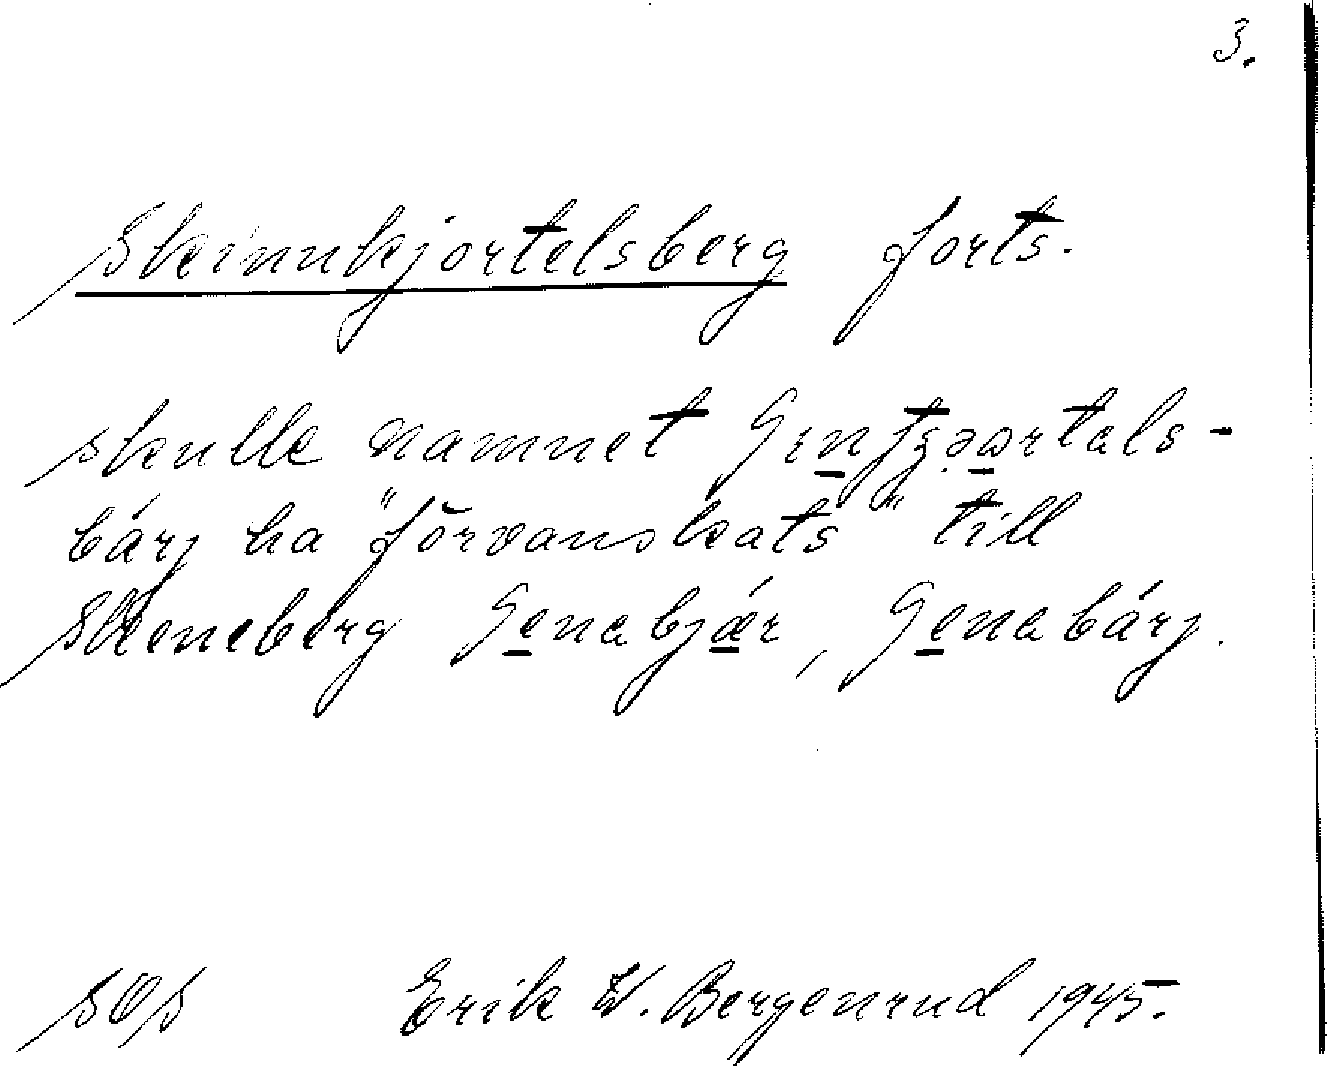 3.
Skinnkjortelsberg forts.
skulle namnet
bárj ha "förvanskats" till
Skeneberg Ʃenabjær, Ʃenabárj.
SOS Erik W. Bergenrud 1945.